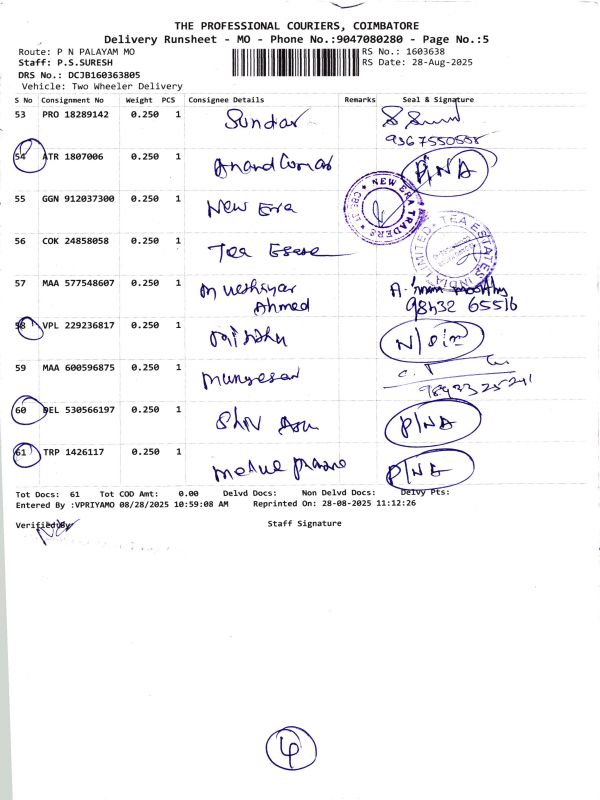 THE PROFESSIONAL COURIERS, COIMBATORE
Delivery Runsheet - MO - Phone No.:9047080280 - Page No.:5
Route: P N PALAYAM MO RS No.: 1603638
Staff: P.S.SURESH RS Date: 28-Aug-2025
DRS No.: DCJB160363805
Vehicle: Two Wheeler Delivery
S No Consignment No Weight PCS Consignee Details Remarks Seal & Signature
53 PRO 18289142 0.250 1 Sundar
9367550558
54 ATR 1807006 0.250 1 P/NA
55 GGN 912037300 0.250 1 New Era NEW ERA TRADERS
56 COK 24858058 0.250 1 Tea TEA ESTATES INDIA LIMITED
57 MAA 577548607 0.250 1 Ahmed
98432 65516
58 VPL 229236817 0.250 1
59 MAA 600596875 0.250 1 Murugesan
9893325241
60 DEL 530566197 0.250 1 P/NA
61 TRP 1426117 0.250 1
Tot Docs: 61 Tot COD Amt: 0.00 Delvd Docs: Non Delvd Docs: Delvy Pts:
Entered By :VPRIYAMO 08/28/2025 10:59:08 AM Reprinted On: 28-08-2025 11:12:26
Verified By Staff Signature
4